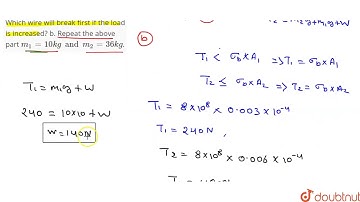 Which wire will break first if the load
is increased? b. Repeat the above
part m₁ = 10kg and m₂ = 36kg.
T₁ = m₁g + W
240 = 10×10 + W
W = 140N
b
T₁ < σb × A₁ ⇒ T₁ = σb × A₁
T₂ ≤ σb × A₂ ⇒ T₂ = σb × A₂
T₁ = 8×10⁸ × 0.003×10⁻⁴
T₁ = 240N,
T₂ = 8×10⁸ × 0.006×10⁻⁴
doubtnut